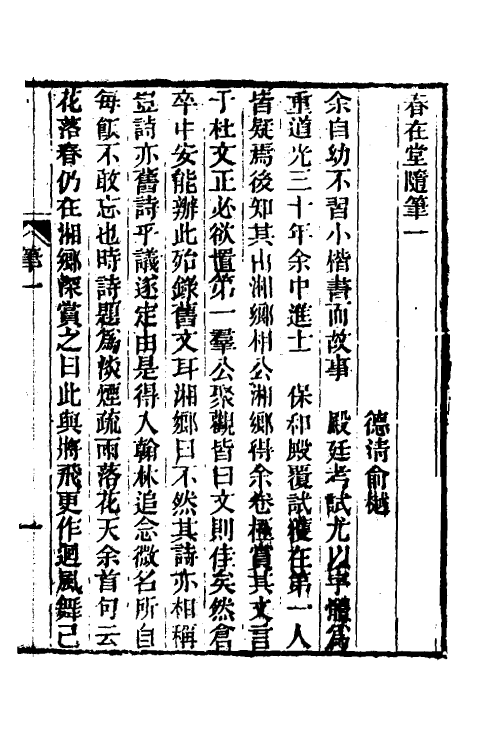 春在堂隨筆一
德清俞樾
余自幼不習小楷書而故事　殿廷考試尤以字體爲
重道光三十年余中進士　保和殿覆試獲在第一人
皆疑焉後知其出湘鄉相公湘鄉得余卷極賞其文言
于杜文正必欲置第一羣公聚觀皆曰文則佳矣然倉
卒中安能辦此殆錄舊文耳湘鄉曰不然其詩亦相稱
豈詩亦舊詩乎議遂定由是得入翰林追念微名所自
每飯不敢忘也時詩題爲淡煙疏雨落花天余首句云
花落春仍在湘鄉深賞之曰此與將飛更作迴風舞已
筆一
一